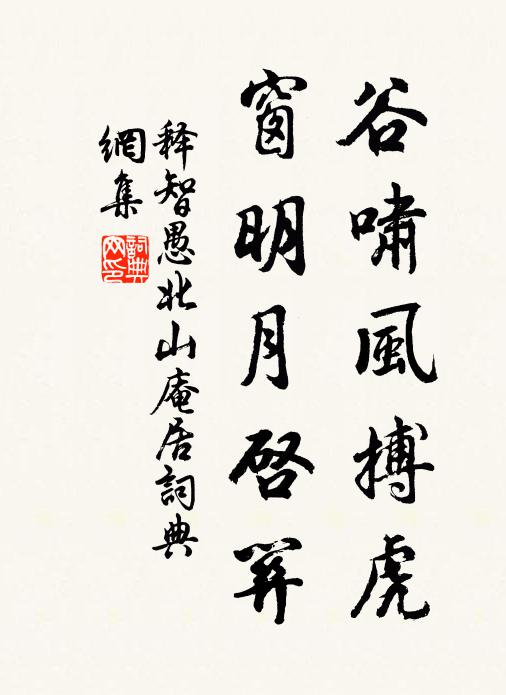 谷嘯風搏虎
窗明月啓
释智愚北山庵居詞典
網集
詞典網印